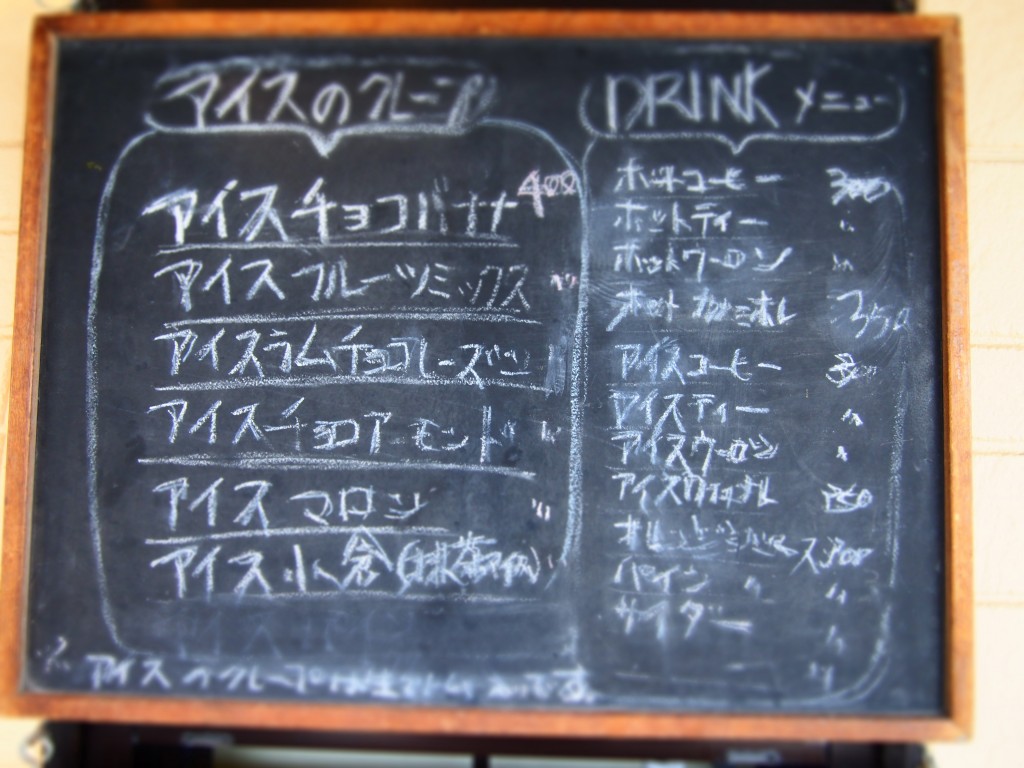 アイスのクレープ
アイスチョコバナナ 400
アイスフルーツミックス 〃
アイスラムチョコレーズン
アイスチョコアーモンド 〃
アイスマロン 〃
アイス小倉(抹茶アイス) 〃
アイスのクレープは
DRINK メニュー
ホットコーヒー 300
ホットティー 〃
ホットウーロン 〃
ホットカフェオレ 350
アイスコーヒー
アイスティー 〃
アイスウーロン 〃
アイスカフェオレ 350
オレンジジュース 300
パイン 〃 〃
サイダー 〃
〃